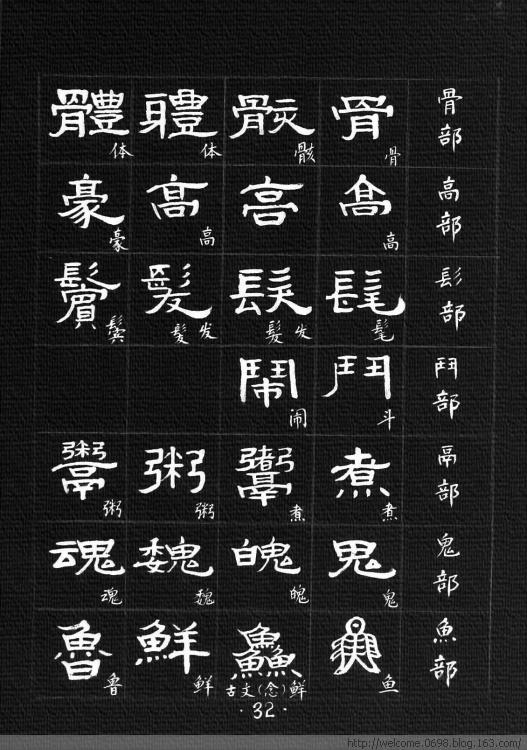 骨部
骨 骸 體 體
骨 骸 体 体
高部
高 高 高 豪
高 高 豪
髟部
髦 髮 髮 鬢
髦 髮发 髮发 鬓
鬥部
鬥 鬧
斗 闹
鬲部
煮 鬻 粥 鬻
煮 煮 粥 粥
鬼部
鬼 魄 魏 魂
鬼 魄 魏 魂
魚部
魚 鱻 鮮 魯
鱼 古文(念)鲜 鲜 鲁
·32·
http://welcome.0698.blog.163.com/